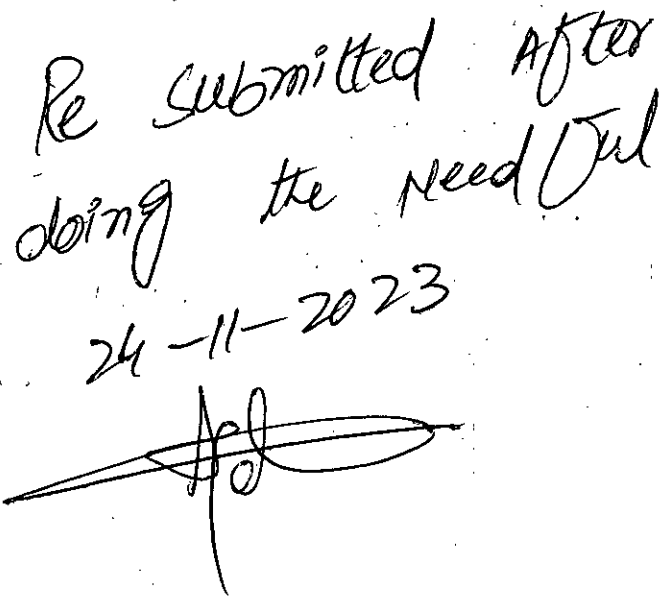 Re submitted After
doing the Needful
24-11-2023